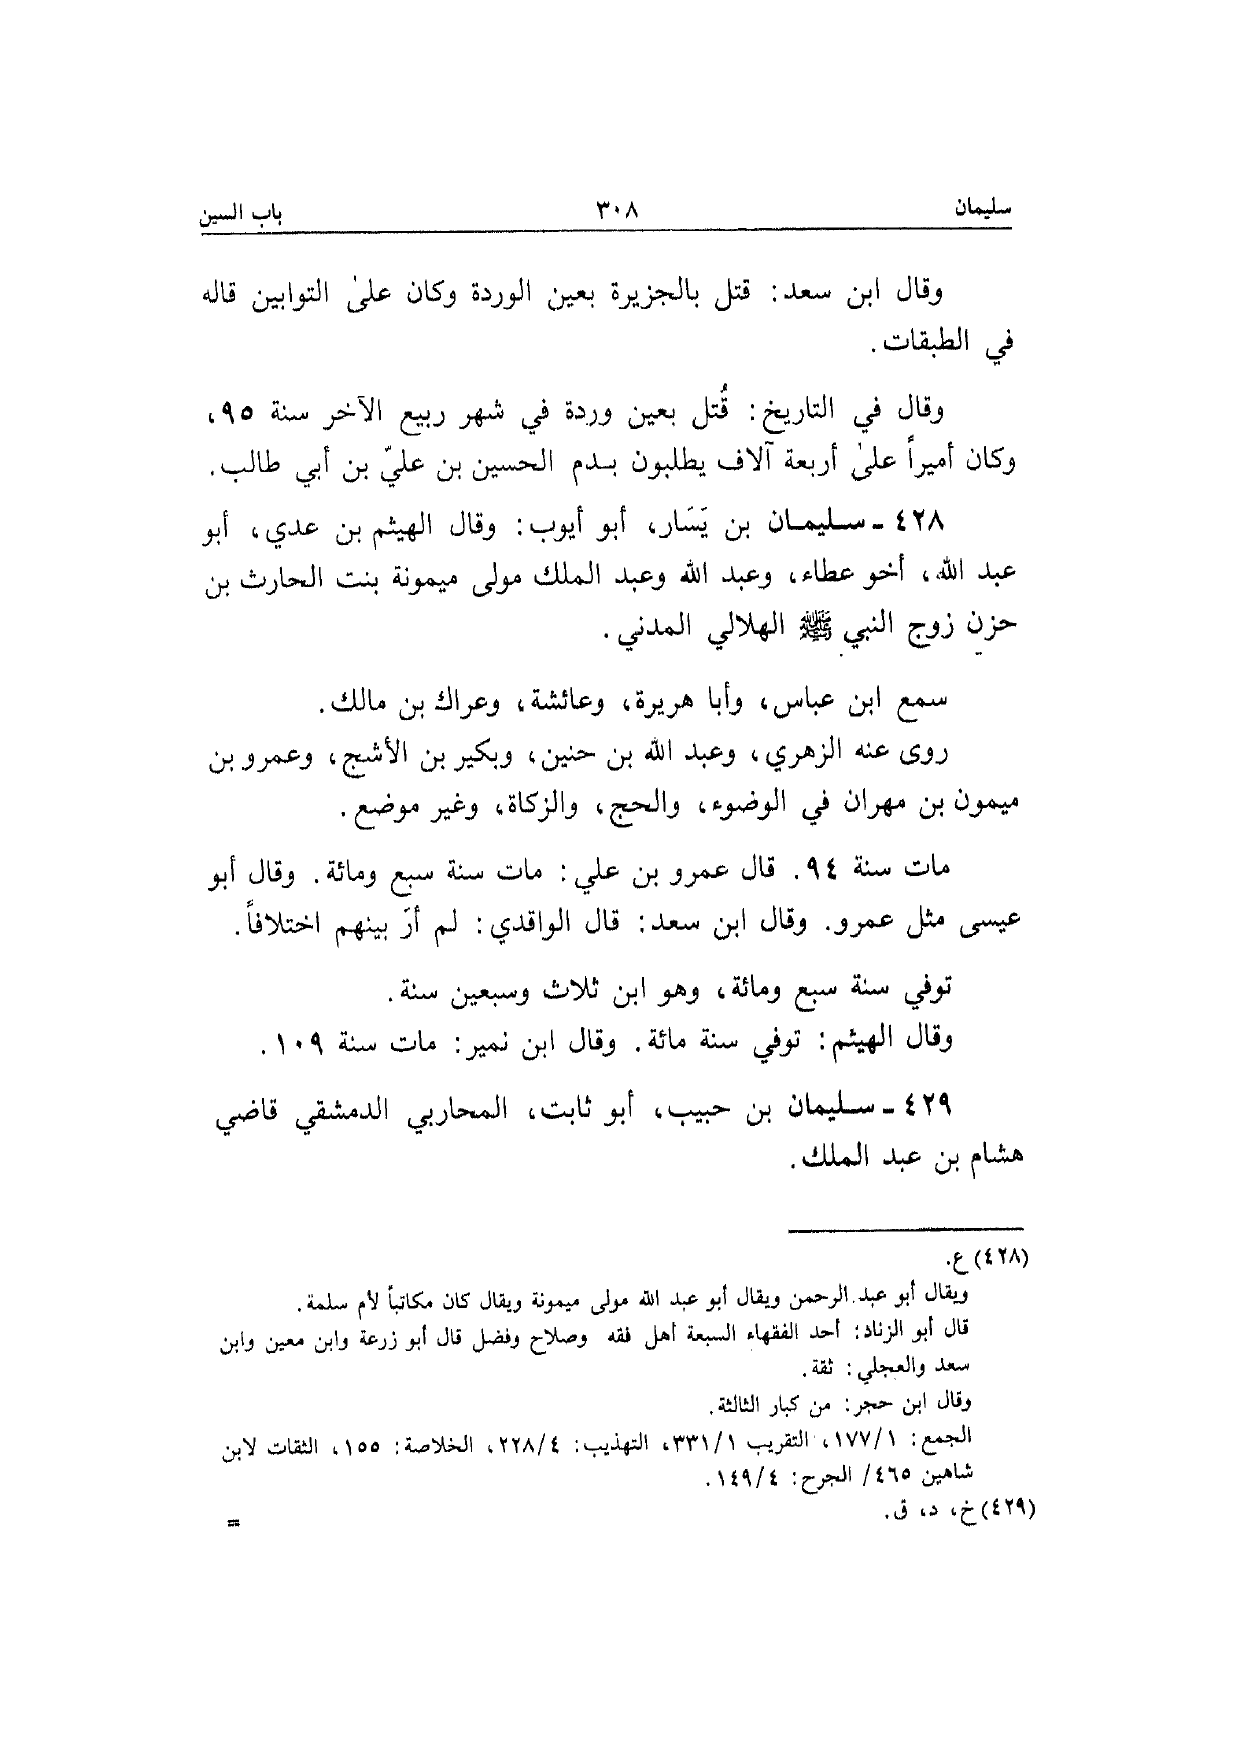 سليمان ٣٠٨ باب السين
وقال ابن سعد: قتل بالجزيرة بعين الوردة وكان علىٰ التوابين قاله
في الطبقات.
وقال في التاريخ: قُتل بعين وردة في شهر ربيع الآخر سنة ٩٥،
وكان أميراً علىٰ أربعة آلاف يطلبون بدم الحسين بن عليّ بن أبي طالب.
٤٢٨ ـ سليمان بن يَسَار، أبو أيوب: وقال الهيثم بن عدي، أبو
عبد الله، أخو عطاء، وعبد الله وعبد الملك مولى ميمونة بنت الحارث بن
حزن زوج النبي ﷺ الهلالي المدني.
سمع ابن عباس، وأبا هريرة، وعائشة، وعراك بن مالك.
روى عنه الزهري، وعبد الله بن حنين، وبكير بن الأشج، وعمرو بن
ميمون بن مهران في الوضوء، والحج، والزكاة، وغير موضع.
مات سنة ٩٤. قال عمرو بن علي: مات سنة سبع ومائة. وقال أبو
عيسى مثل عمرو. وقال ابن سعد: قال الواقدي: لم أرَ بينهم اختلافاً.
توفي سنة سبع ومائة، وهو ابن ثلاث وسبعين سنة.
وقال الهيثم: توفي سنة مائة. وقال ابن نمير: مات سنة ١٠٩.
٤٢٩ ـ سليمان بن حبيب، أبو ثابت، المحاربي الدمشقي قاضي
هشام بن عبد الملك.
(٤٢٨) ع.
ويقال أبو عبد الرحمن ويقال أبو عبد الله مولى ميمونة ويقال كان مكاتباً لأم سلمة.
قال أبو الزناد: أحد الفقهاء السبعة أهل فقه وصلاح وفضل قال أبو زرعة وابن معين وابن
سعد والعجلي: ثقة.
وقال ابن حجر: من كبار الثالثة.
الجمع: ١٧٧/١، التقريب ٣٣١/١، التهذيب: ٢٢٨/٤، الخلاصة: ١٥٥، الثقات لابن
شاهين ٤٦٥/ الجرح: ١٤٩/٤.
(٤٢٩) خ، د، ق.
=